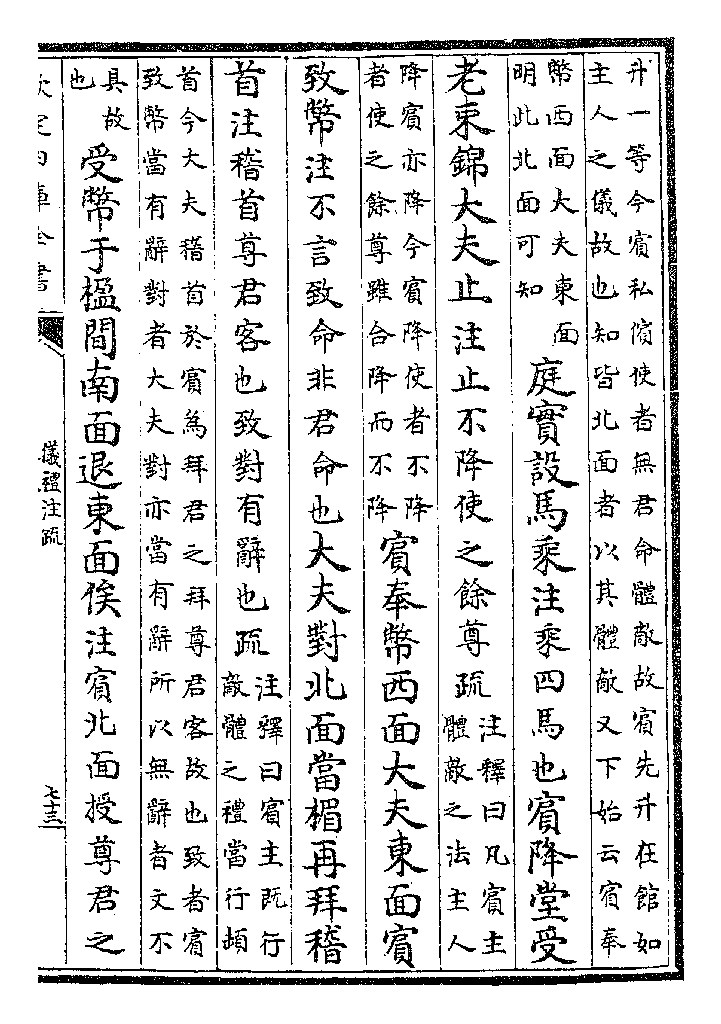 升一等今賓私儐使者無君命體敵故賓先升在館如
主人之儀故也知皆北面者以其體敵又下始云賓奉
幣西面大夫東面
明此北面可知
庭實設馬乘注乘四馬也賓降堂受
老束錦大夫止注止不降使之餘尊疏
注釋曰凡賓主
體敵之法主人
降賓亦降今賓降使者不降
者使之餘尊雖合降而不降
賓奉幣西面大夫東面賓
致幣注不言致命非君命也大夫對北面當楣再拜稽
首注稽首尊君客也致對有辭也疏
注釋曰賓主既行
敵體之禮當行頓
首今大夫稽首於賓為拜君之拜尊君客故也致者賓
致幣當有辭對者大夫對亦當有辭所以無辭者文不
具故
也
受幣于楹間南面退東面俟注賓北面授尊君之
儀禮注疏
七十三